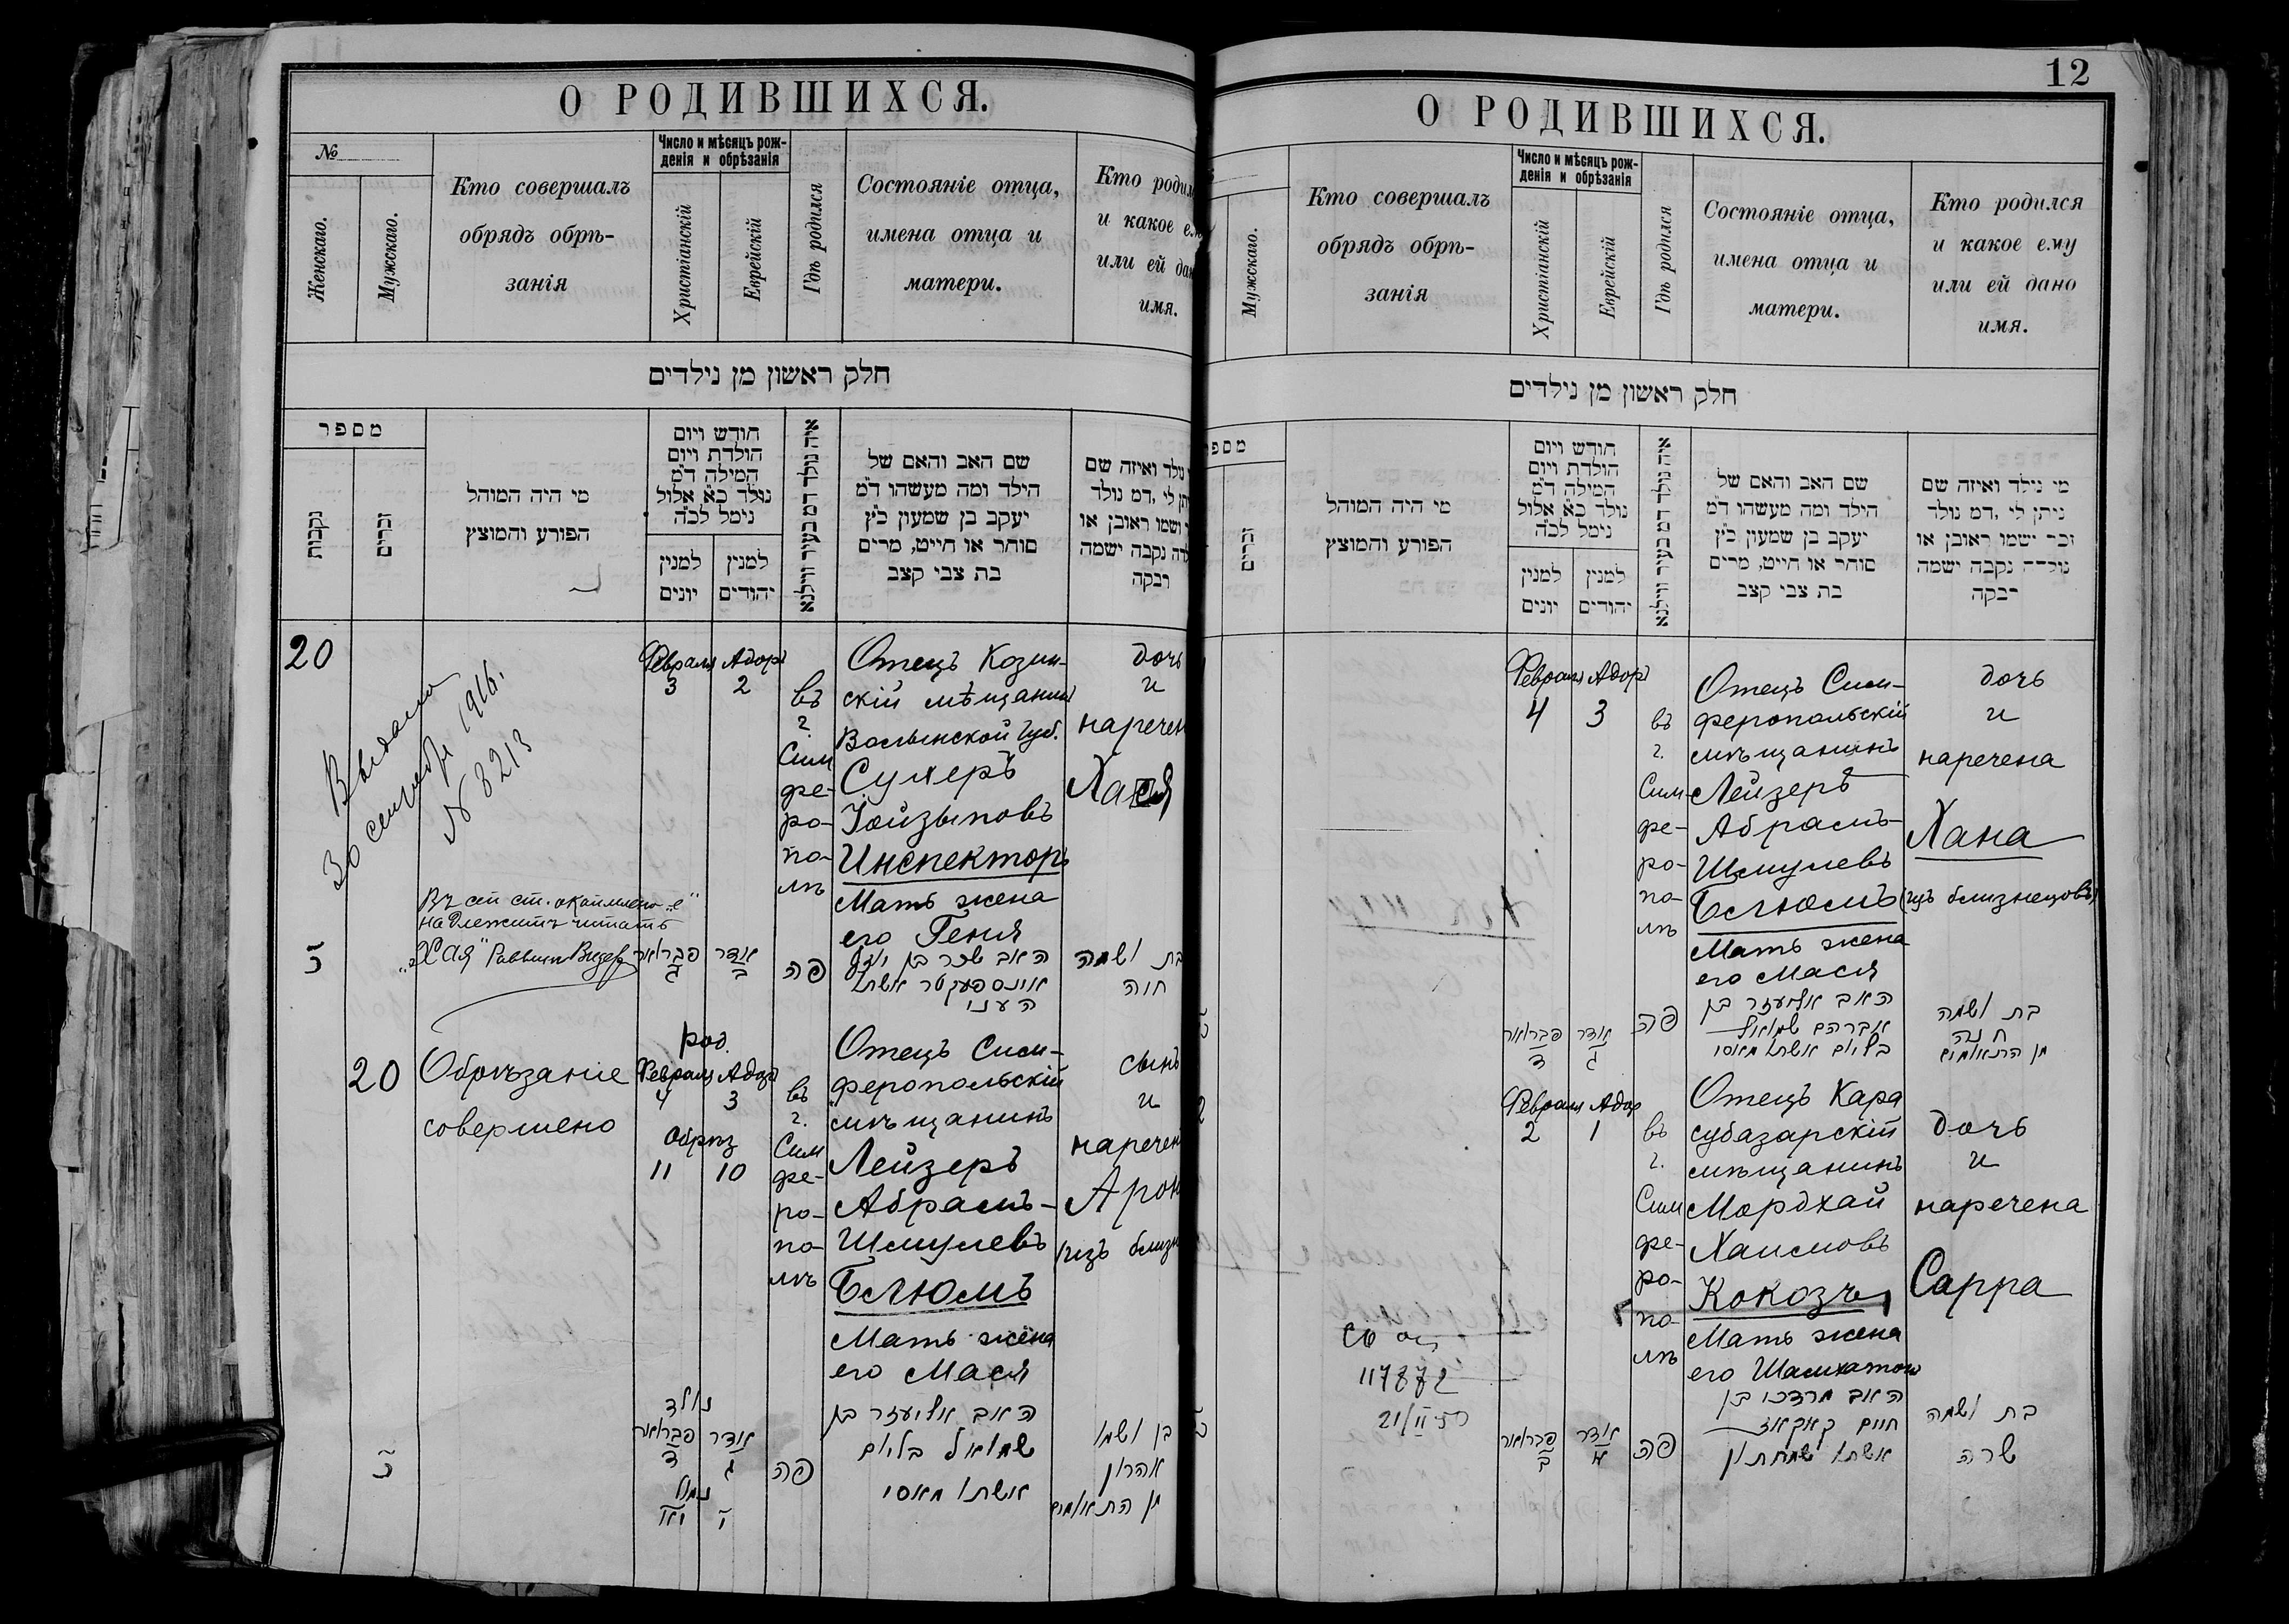 О РОДИВШИХСЯ.
№
Женскаго.
Мужскаго.
Кто совершалъ
обрядъ обрѣ-
занія
Число и мѣсяцъ рож-
денія и обрѣзанія
Христіанскій
Еврейскій
Гдѣ родился
Состояніе отца,
имена отца и
матери.
Кто родил
и какое ем
или ей дан
имя.
חלק ראשון מן נילדים
מספר
נקבות
זכרים
מי היה המוהל
הפורע והמוצץ
חודש ויום
הולדת ויום
המילה ד״מ
נולד כ״א אלול
נימל לכ״ה
למנין
יונים
למנין
יהודים
איה נולד דמ בעיר ווילנא
שם האב והאם של
הילד ומה מעשהו ד״מ
יעקב בן שמעון כ״ץ
סוחר או חייט, מרים
בת צבי קצב
נולד ואיזה שם
תן לי ,דמ נולד
ושמו ראובן או
נקבה ישמה
רבקה
20
Выдана
30 сентября 1916.
№ 8213
Въ сей ст. окаймлено „с"
надлежитъ читать
„Хая" Раввинъ
Февраля Адоръ
3 2
въ
г.
Сим
фе-
ро-
по-
лѣ
Отецъ Козин-
скій мѣщанинъ
Волынской губ.
Сухеръ
Іойзыповъ
Инспекторъ
Мать жена
его Геня
дочь
и
наречен
Хася
כ
פברואר
ג
אדר
ב
פה
האב שכר בן
אינספעקטר אשתו
העני
בת ושמה
חוה
20
Обрѣзаніе
совершено
род.
Февраля Адоръ
4 3
Обрѣз
11 10
въ
г.
Сим
фе-
ро-
по-
лѣ
Отецъ Сим-
феропольскій
мѣщанинъ
Лейзеръ
Абрамъ-
Шмулевъ
Беліомъ
Мать жена
его Мася
сынъ
и
наречен
Арон
(изъ близн
כ
נולד
פברואר
ד
אדר
ג
נימול
יא
י
פה
האב אליעזר בן
שמואל בליום
אשתו מאסי
בן ושמו
אהרון
מן התאומים
12
О РОДИВШИХСЯ.
Мужскаго.
Кто совершалъ
обрядъ обрѣ-
занія
Число и мѣсяцъ рож-
денія и обрѣзанія
Христіанскій
Еврейскій
Гдѣ родился
Состояніе отца,
имена отца и
матери.
Кто родился
и какое ему
или ей дано
имя.
חלק ראשון מן נילדים
מספ
זכרים
מי היה המוהל
הפורע והמוצץ
חודש ויום
הולדת ויום
המילה ד״מ
נולד כ״א אלול
נימל לכ״ה
למנין
יונים
למנין
יהודים
איה נולד דמ בעיר ווילנא
שם האב והאם של
הילד ומה מעשהו ד״מ
יעקב בן שמעון כ״ץ
סוחר או חייט, מרים
בת צבי קצב
מי נילד ואיזה שם
ניתן לי ,דמ נולד
זכר ישמו ראובן או
נולדה נקבה ישמה
רבקה
Февраля Адоръ
4 3
въ
г.
Сим-
фе-
ро-
по-
лѣ
Отецъ Сим-
феропольскій
мѣщанинъ
Лейзеръ
Абрамъ-
Шмулевъ
Беліомъ
Мать жена
его Мася
дочь
и
наречена
Хана
(изъ близнецовъ)
פברואר
ד
אדר
ג
פה
האב אליעזר בן
אברהם שמואל
בליום אשתו מאסי
בת ושמה
חנה
מן התאומים
Февраля Адор
2 1
въ
г.
Сим
фе-
ро-
по-
лѣ
Отецъ Кара
субазарскій
мѣщанинъ
Мордхай
Хаимовъ
Кокозъ
Мать жена
его Шамхатонъ
дочь
и
наречена
Сарра
117872
21/II 50
פברואר
ב
אדר
א
פה
האב מרדכי בן
חיים קאקאז
אשתו שמחתון
בת ושמה
שרה